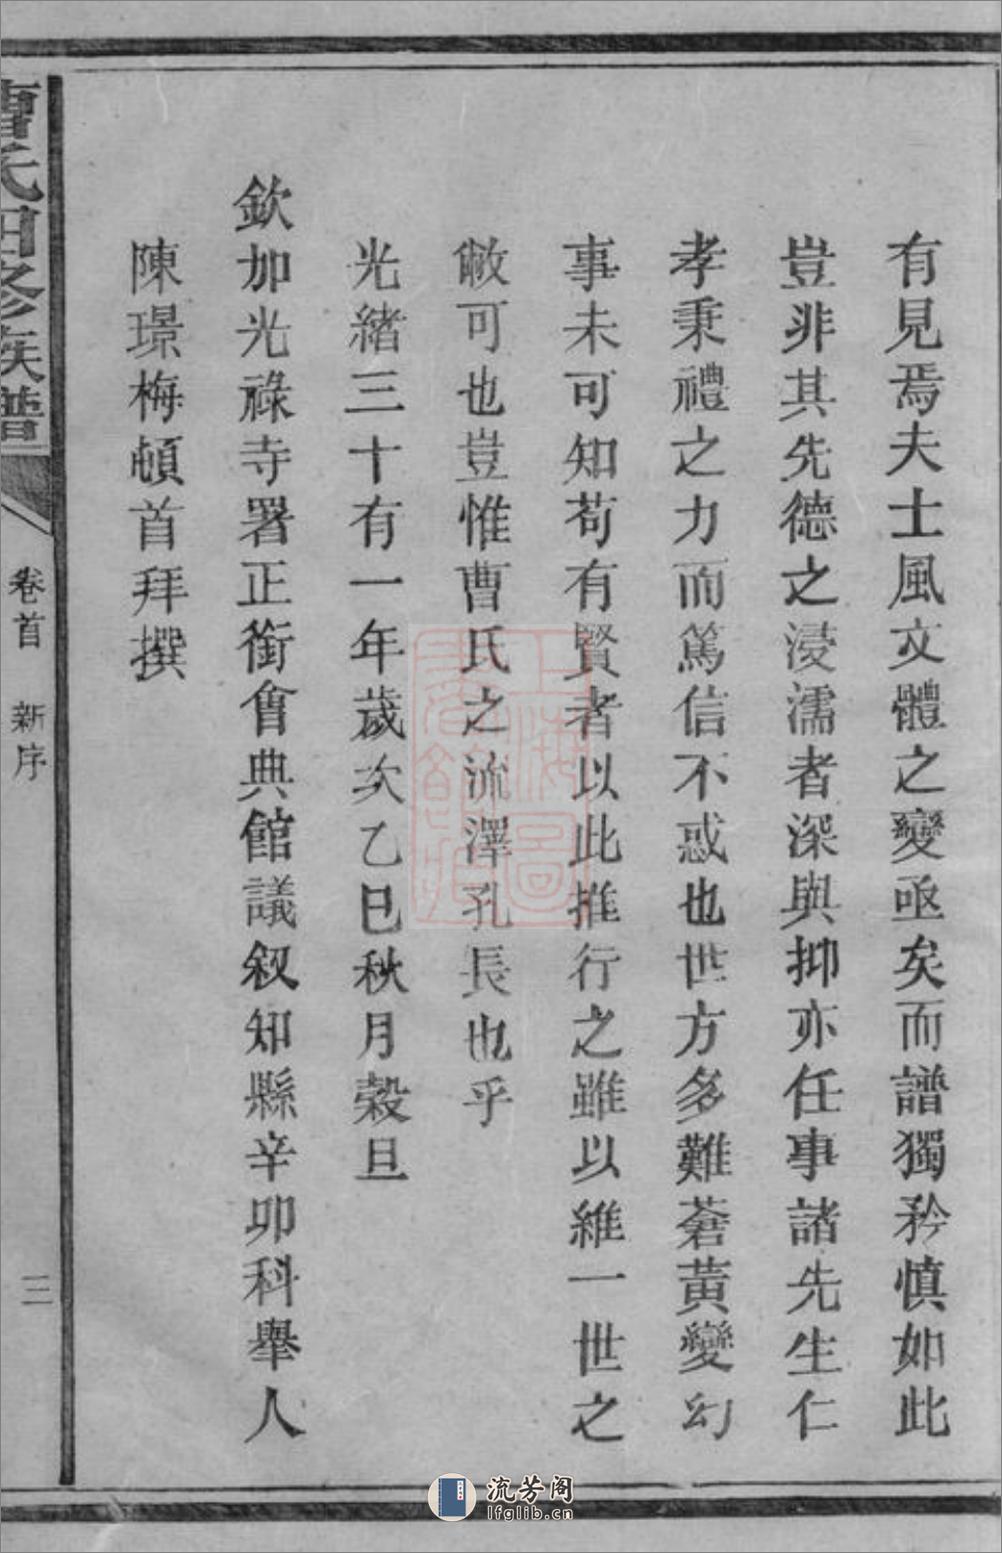 有見焉夫士風文體之變亟矣而譜獨矜慎如此
豈非其先德之浸濡者深與抑亦任事諸先生仁
孝秉禮之力而篤信不惑也世方多難蒼黃變幻
事未可知苟有賢者以此推行之雖以維一世之
敝可也豈惟曹氏之流澤孔長也乎
光緒三十有一年歲次乙巳秋月穀旦
欽加光祿寺署正銜會典館議敘知縣辛卯科舉人
陳璟梅頓首拜撰
曹氏四修族譜
卷首 新序
三
上海圖書館藏
流芳阁
lfglib.cn